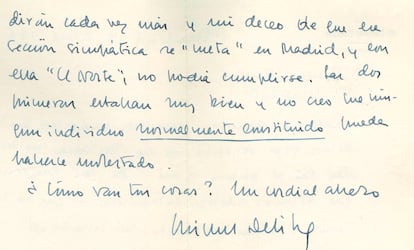 dirán cada vez más y mi deseo de que esa
sección simpática se "meta" en Madrid, y con
ella "El Norte", no podía cumplirse. Las dos
primeras estaban muy bien y no creo que nin-
gun individuo normalmente constituido pueda
haberse molestado.
¿Cómo van tus cosas? Un cordial abrazo
Miguel Delibes